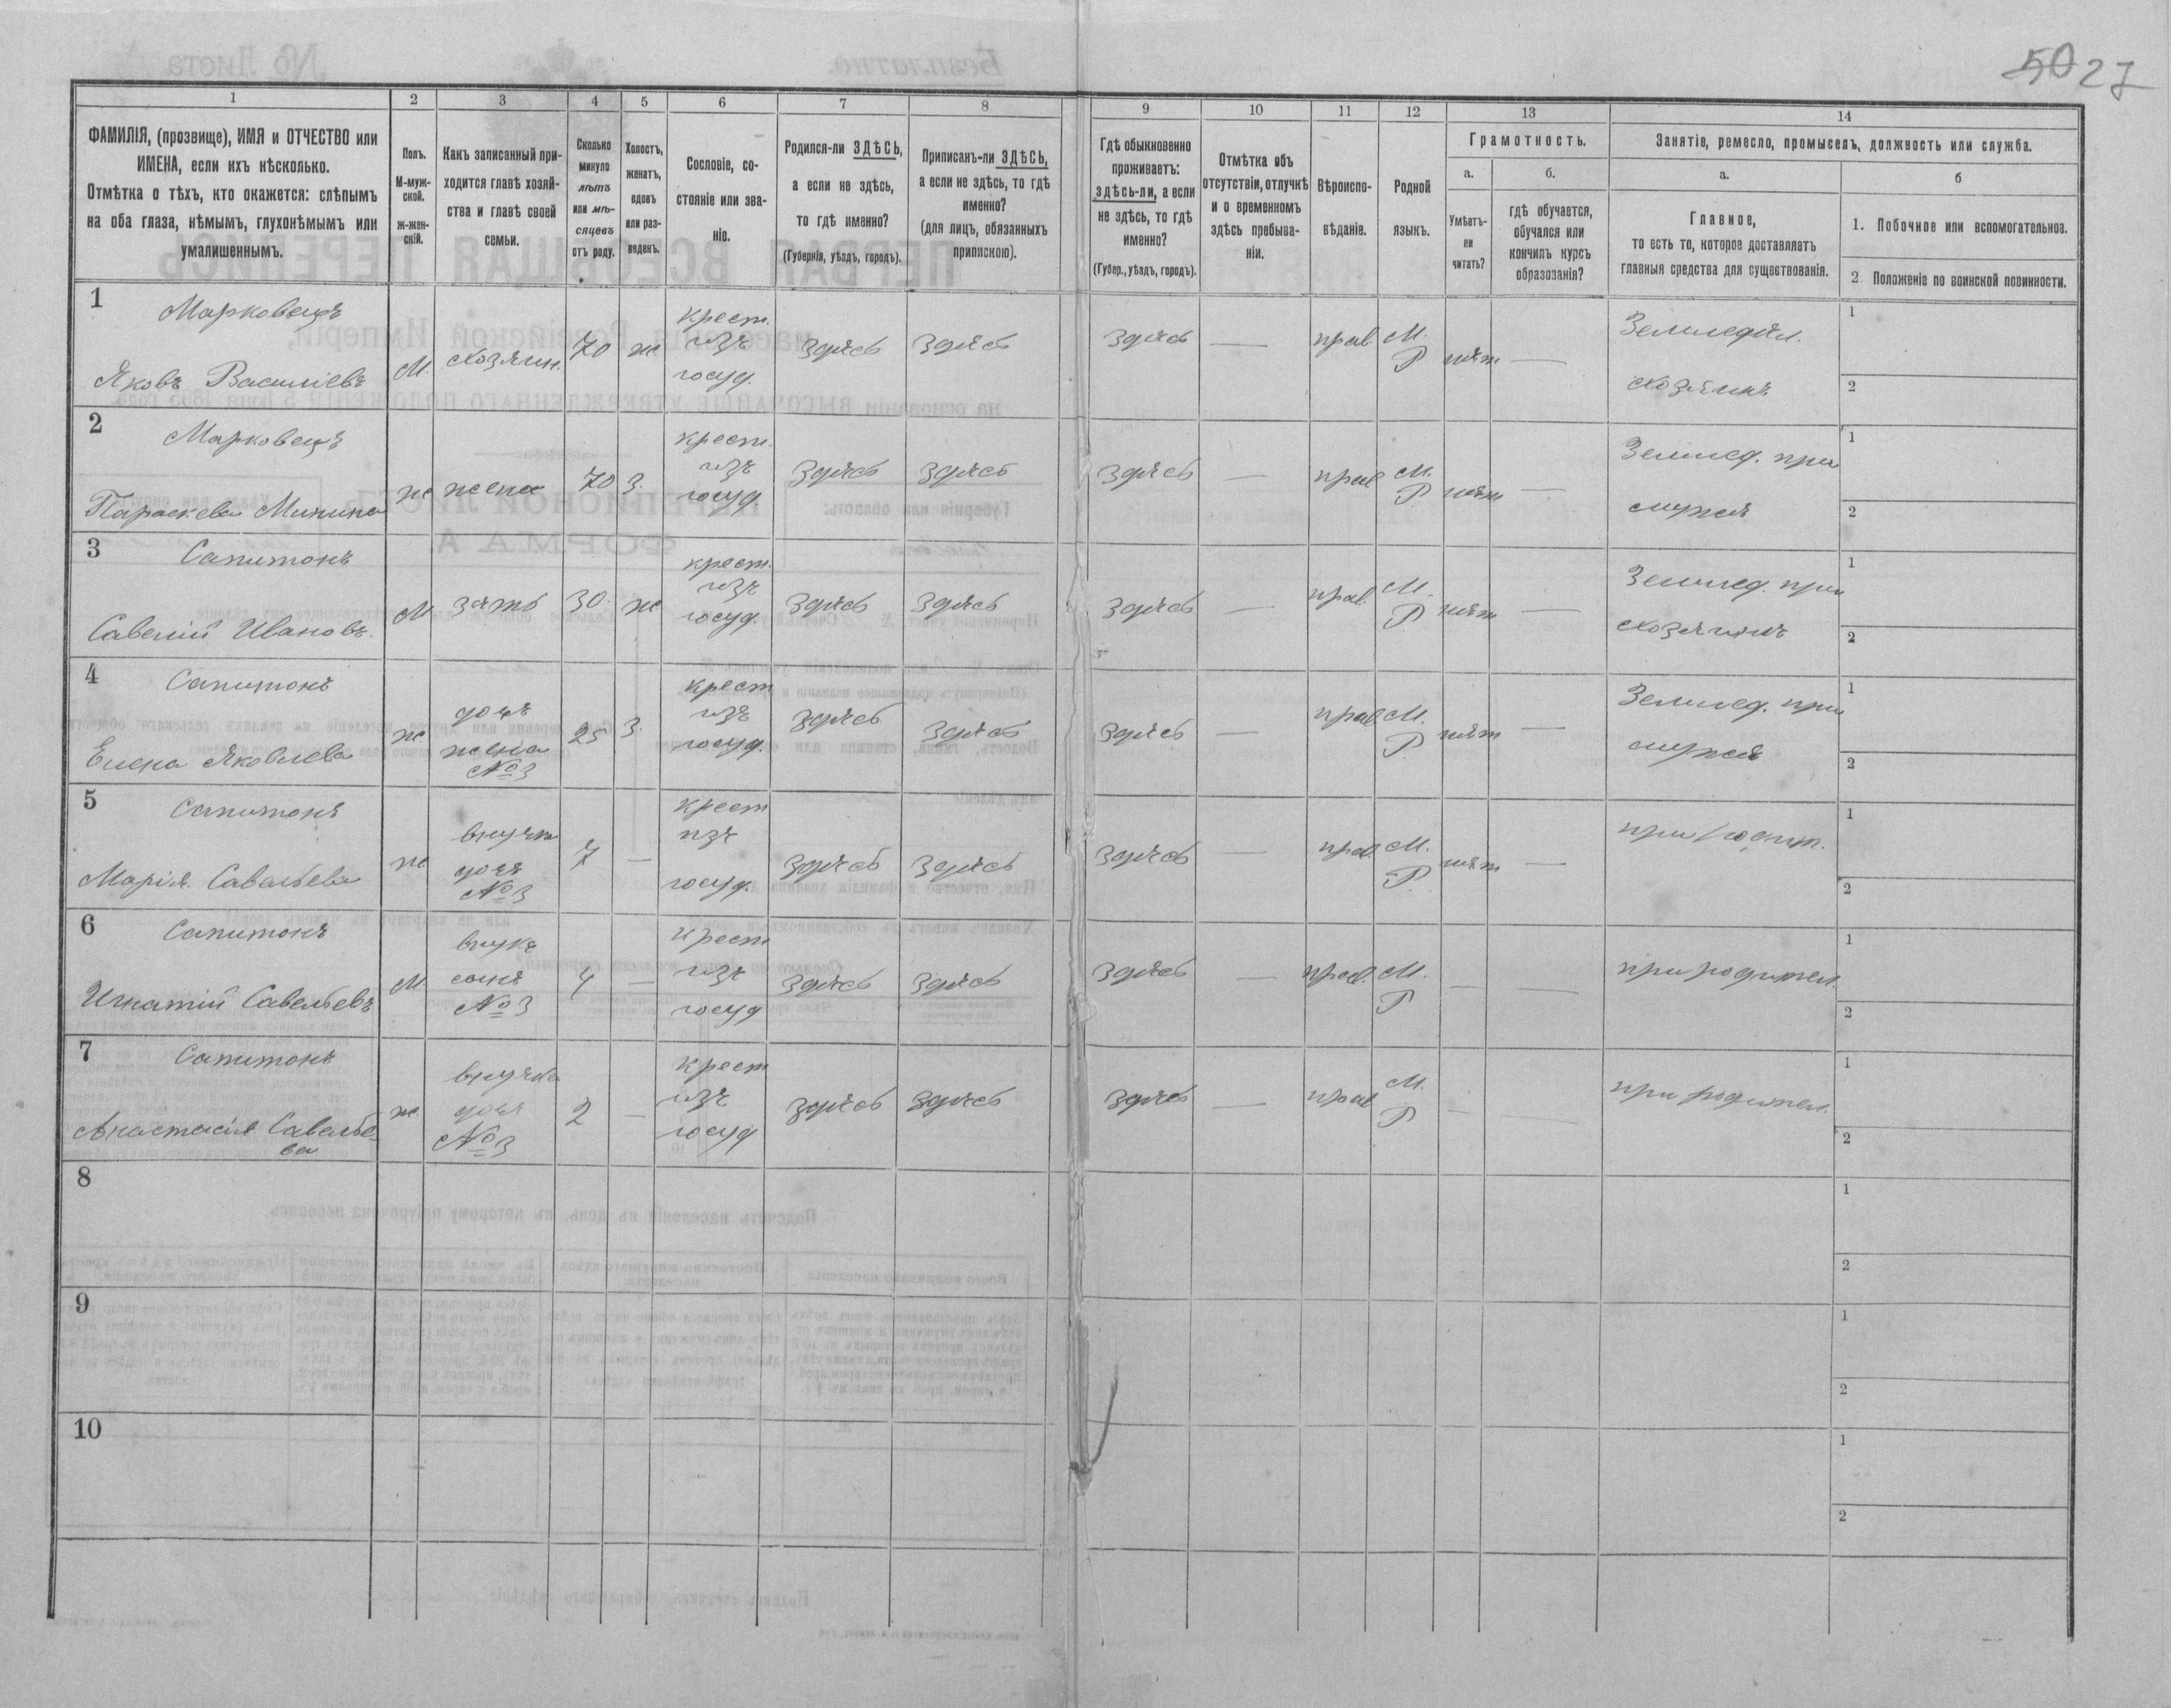 50 27
1
2
3
4
5
6
7
8
9
10
11
12
13
14
ФАМИЛІЯ, (прозвище), ИМЯ и ОТЧЕСТВО или
ИМЕНА, если ихъ нѣсколько.
Отмѣтка о тѣхъ, кто окажется: слѣпымъ
на оба глаза, нѣмымъ, глухонѣмымъ или
умалишеннымъ.
Полъ.
М-муж-
ской.
ж-жен-
скій.
Какъ записанный при-
ходится главѣ хозяй-
ства и главѣ своей
семьи.
Сколько
минуло
лѣтъ
или мѣ-
сяцевъ
отъ роду.
Холостъ,
женатъ,
вдовъ
или раз-
веденъ.
Сословіе, со-
стояніе или зва-
ніе.
Родился-ли ЗДѢСЬ,
а если не здѣсь,
то гдѣ именно?
(Губернія, уѣздъ, городъ).
Приписанъ-ли ЗДѢСЬ,
а если не здѣсь, то гдѣ
именно?
(для лицъ, обязанныхъ
припискою).
Гдѣ обыкновенно
проживаетъ:
здѣсь-ли, а если
не здѣсь, то гдѣ
именно?
(Губер., уѣздъ, городъ).
Отмѣтка объ
отсутствіи, отлучкѣ
и о временномъ
здѣсь пребыва-
ніи.
Вѣроиспо-
вѣданіе.
Родной
языкъ.
Грамотность.
а.
Умѣетъ-
ли
читать?
б.
гдѣ обучается,
обучался или
кончилъ курсъ
образованія?
Занятіе, ремесло, промыселъ, должность или служба.
а.
Главное,
то есть то, которое доставляетъ
главныя средства для существованія.
б
1. Побочное или вспомогательное.
2. Положеніе по воинской повинности.
1
Марковецъ
Яковъ Василіевъ
М.
хозяин.
70
ж
крест.
изъ
госуд.
здѣсь
здѣсь
здѣсь
—
прав
М.
Р
нѣт
—
Земледѣл.
хозяинъ
1
2
2
Марковецъ
Параскева Минина
ж
жена
70
з.
крест.
изъ
госуд.
здѣсь
здѣсь
здѣсь
—
прав
М.
Р
нѣт
—
Землед. при
мужѣ
1
2
3
Сапитонъ
Савелій Ивановъ.
М
зять
30.
ж
крест.
изъ
госуд.
здѣсь
здѣсь
здѣсь
—
прав.
М.
Р
нѣт
—
Землед. при
хозяинѣ
1
2
4
Сапитонъ
Елена Яковлева
ж
дочь
жена
№3
25
з.
крест
изъ
госуд.
здѣсь
здѣсь
здѣсь
—
прав
М.
Р
нѣт
—
Землед. при
мужѣ
1
2
5
Сапитонъ
Марія Савельева
ж
дочь
№3
7
—
крест
изъ
госуд.
здѣсь
здѣсь
здѣсь
—
прав.
М.
Р.
нѣт
—
при родит.
1
2
6
Сапитонъ
Игнатій Савельевъ
М
внукъ
сынъ
№3
4
—
крест
изъ
госуд
здѣсь
здѣсь
здѣсь
—
прав.
М.
Р
—
—
при родител.
1
2
7
Сапитонъ
Анастасія Савелье
ва
ж.
внучка
дочь
№3
2
—
крест
изъ
госуд
здѣсь
здѣсь
здѣсь
—
прав
М.
Р
—
—
при родител.
1
2
8
1
2
9
1
2
10
1
2